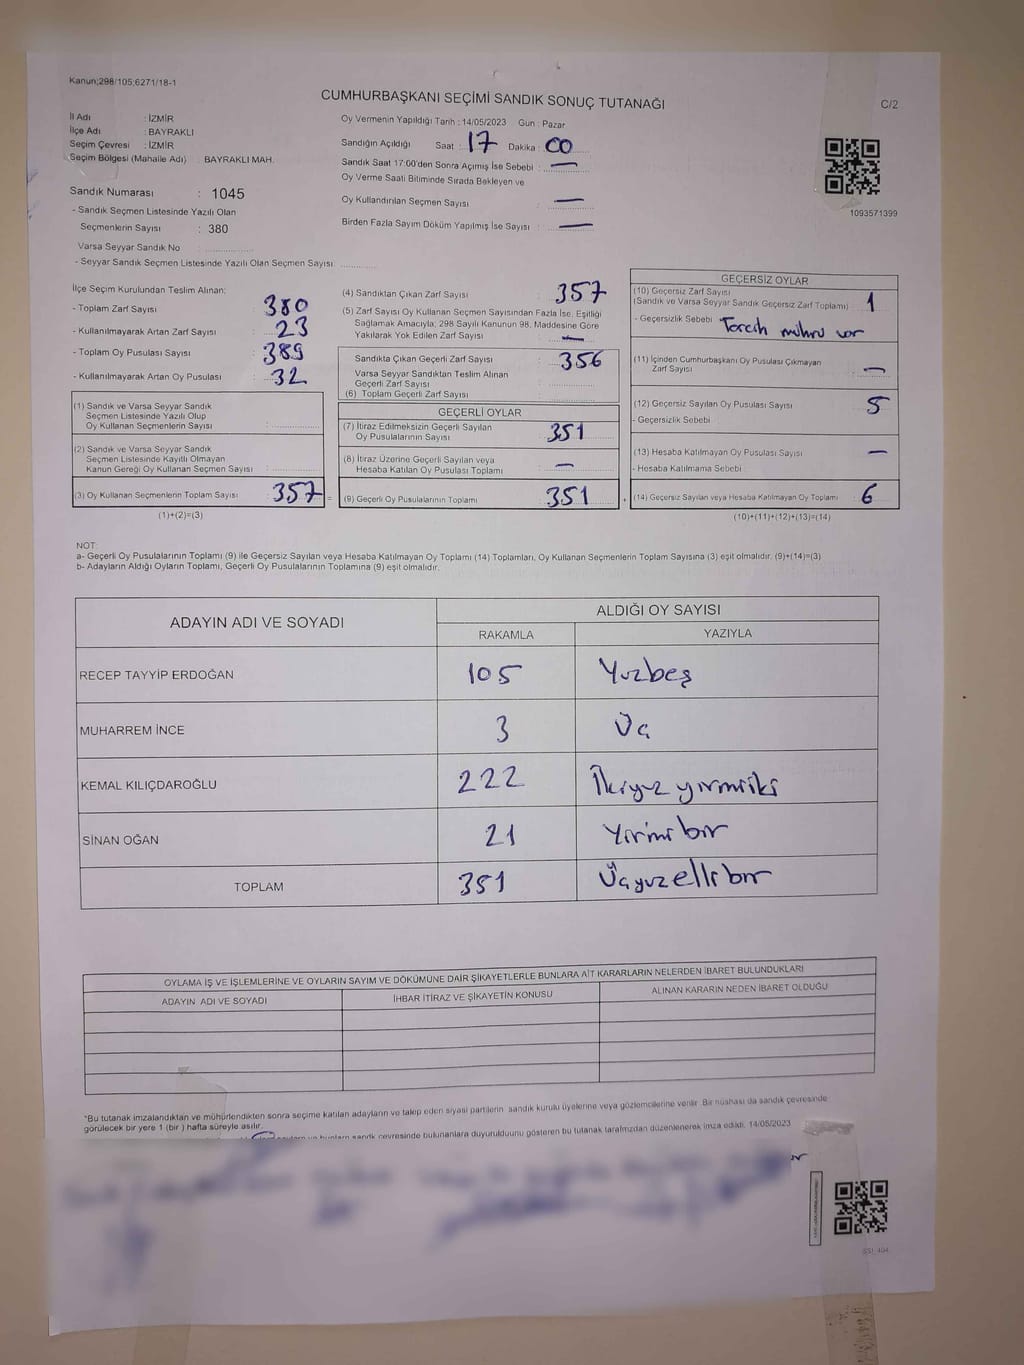 Kanun;298/105;6271/18-1
CUMHURBAŞKANI SEÇİMİ SANDIK SONUÇ TUTANAĞI
C/2
İl Adı : İZMİR
İlçe Adı : BAYRAKLI
Seçim Çevresi : İZMİR
Seçim Bölgesi (Mahalle Adı) : BAYRAKLI MAH.
Sandık Numarası : 1045
- Sandık Seçmen Listesinde Yazılı Olan
Seçmenlerin Sayısı : 380
Varsa Seyyar Sandık No :
- Seyyar Sandık Seçmen Listesinde Yazılı Olan Seçmen Sayısı:
Oy Vermenin Yapıldığı Tarih : 14/05/2023 Gün : Pazar
Sandığın Açıldığı Saat : 17 Dakika : 00
Sandık Saat 17:00'den Sonra Açımış İse Sebebi : —
Oy Verme Saati Bitiminde Sırada Bekleyen ve
Oy Kullandırılan Seçmen Sayısı : —
Birden Fazla Sayım Döküm Yapılmış İse Sayısı : —
1093571399
İlçe Seçim Kurulundan Teslim Alınan:
- Toplam Zarf Sayısı : 380
- Kullanılmayarak Artan Zarf Sayısı : 23
- Toplam Oy Pusulası Sayısı : 389
- Kullanılmayarak Artan Oy Pusulası : 32
(1) Sandık ve Varsa Seyyar Sandık
Seçmen Listesinde Yazılı Olup
Oy Kullanan Seçmenlerin Sayısı :
(2) Sandık ve Varsa Seyyar Sandık
Seçmen Listesinde Kayıtlı Olmayan
Kanun Gereği Oy Kullanan Seçmen Sayısı :
(3) Oy Kullanan Seçmenlerin Toplam Sayısı : 357 =
(1)+(2)=(3)
(4) Sandıktan Çıkan Zarf Sayısı : 357
(5) Zarf Sayısı Oy Kullanan Seçmen Sayısından Fazla İse, Eşitliği
Sağlamak Amacıyla; 298 Sayılı Kanunun 98. Maddesine Göre
Yakılarak Yok Edilen Zarf Sayısı : —
Sandıkta Çıkan Geçerli Zarf Sayısı : 356
Varsa Seyyar Sandıktan Teslim Alınan
Geçerli Zarf Sayısı :
(6) Toplam Geçerli Zarf Sayısı :
GEÇERLİ OYLAR
(7) İtiraz Edilmeksizin Geçerli Sayılan
Oy Pusulalarının Sayısı : 351
(8) İtiraz Üzerine Geçerli Sayılan veya
Hesaba Katılan Oy Pusulası Toplamı : —
(9) Geçerli Oy Pusulalarının Toplamı : 351 +
GEÇERSİZ OYLAR
(10) Geçersiz Zarf Sayısı
(Sandık ve Varsa Seyyar Sandık Geçersiz Zarf Toplamı) : 1
- Geçersizlik Sebebi : Tercih mührü var
(11) İçinden Cumhurbaşkanı Oy Pusulası Çıkmayan
Zarf Sayısı : —
(12) Geçersiz Sayılan Oy Pusulası Sayısı : 5
- Geçersizlik Sebebi :
(13) Hesaba Katılmayan Oy Pusulası Sayısı : —
- Hesaba Katılmama Sebebi :
(14) Geçersiz Sayılan veya Hesaba Katılmayan Oy Toplamı : 6
(10)+(11)+(12)+(13)=(14)
NOT:
a- Geçerli Oy Pusulalarının Toplamı (9) ile Geçersiz Sayılan veya Hesaba Katılmayan Oy Toplamı (14) Toplamları, Oy Kullanan Seçmenlerin Toplam Sayısına (3) eşit olmalıdır. (9)+(14)=(3)
b- Adayların Aldığı Oyların Toplamı, Geçerli Oy Pusulalarının Toplamına (9) eşit olmalıdır.
ADAYIN ADI VE SOYADI
ALDIĞI OY SAYISI
RAKAMLA YAZIYLA
RECEP TAYYİP ERDOĞAN 105 Yüzbeş
MUHARREM İNCE 3 Üç
KEMAL KILIÇDAROĞLU 222 İkiyüz yirmiiki
SİNAN OĞAN 21 Yirmi bir
TOPLAM 351 Üçyüzelli bir
OYLAMA İŞ VE İŞLEMLERİNE VE OYLARIN SAYIM VE DÖKÜMÜNE DAİR ŞİKAYETLERLE BUNLARA AİT KARARLARIN NELERDEN İBARET BULUNDUKLARI
ADAYIN ADI VE SOYADI İHBAR İTİRAZ VE ŞİKAYETİN KONUSU ALINAN KARARIN NEDEN İBARET OLDUĞU
*Bu tutanak imzalandıktan ve mühürlendikten sonra seçime katılan adayların ve talep eden siyasi partilerin sandık kurulu üyelerine veya gözlemcilerine verilir. Bir nüshası da sandık çevresinde
görülecek bir yere 1 (bir ) hafta süreyle asılır.
sandık çevresinde bulunanlara duyurulduunu gösteren bu tutanak tarafımızdan düzenlenerek imza edildi. 14/05/2023